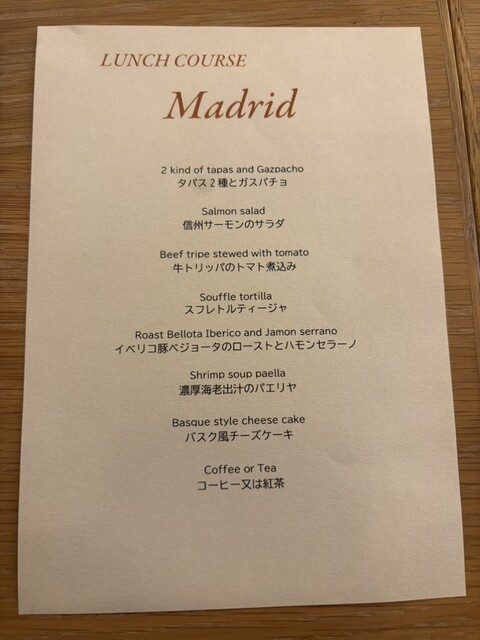 LUNCH COURSE
Madrid
2 kind of tapas and Gazpacho
タパス2種とガスパチョ
Salmon salad
信州サーモンのサラダ
Beef tripe stewed with tomato
牛トリッパのトマト煮込み
Souffle tortilla
スフレトルティージャ
Roast Bellota Iberico and Jamon serrano
イベリコ豚ベジョータのローストとハモンセラーノ
Shrimp soup paella
濃厚海老出汁のパエリヤ
Basque style cheese cake
バスク風チーズケーキ
Coffee or Tea
コーヒー又は紅茶